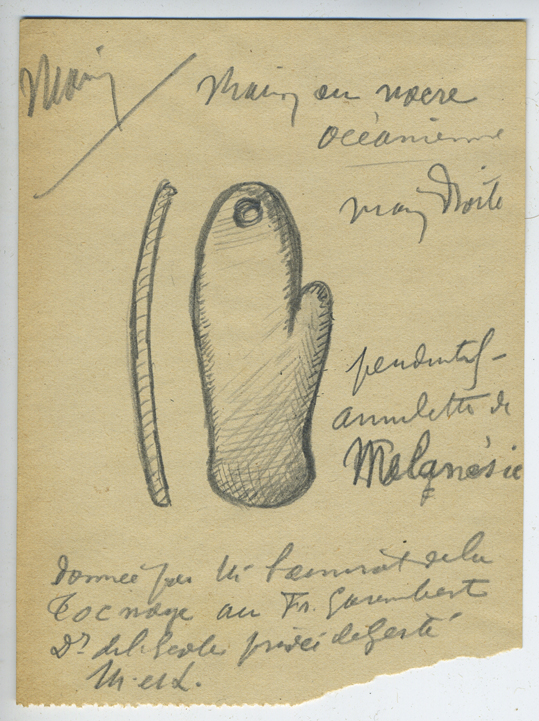 Main
Main en nacre
océanienne
main droite
pendentif-
amulette de
Mélanésie
donnée par M. de la
Tocnaye au Fr. Gurembert
Dr de l'école privée de Gesté
M. et L.